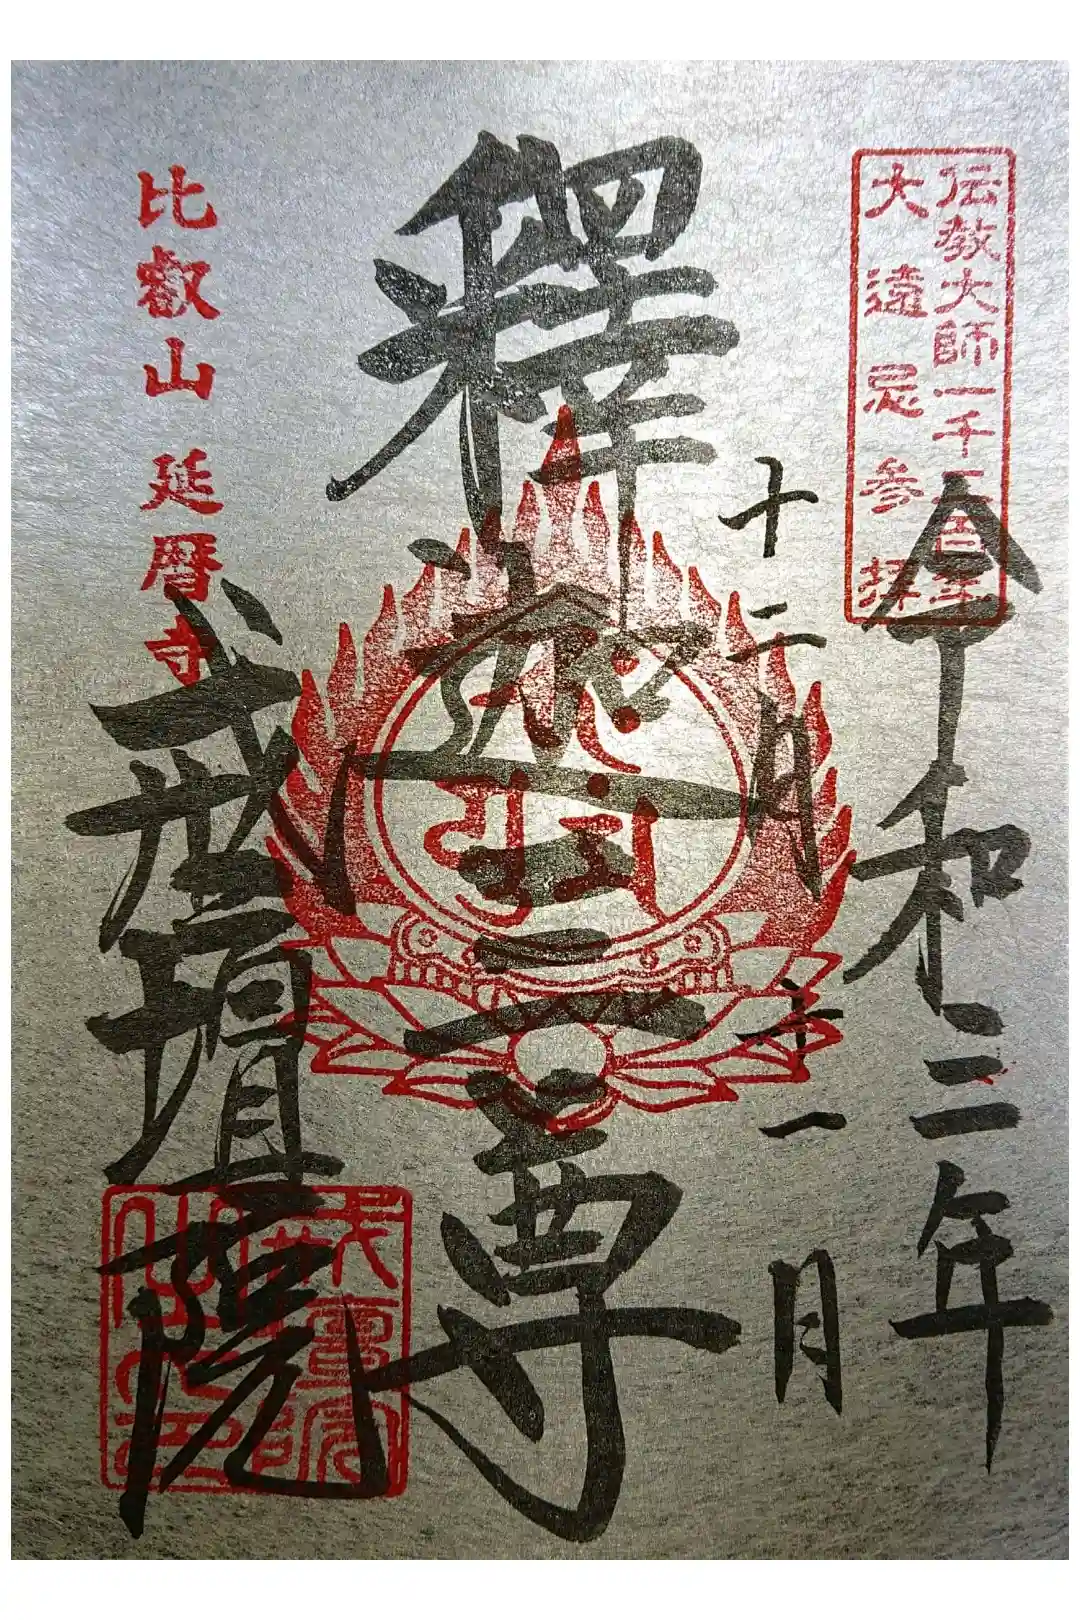 伝教大師一千二百年
大遠忌参拝
令和二年
十二月
十一月
釋迦三尊
比叡山 延暦寺
戒壇院